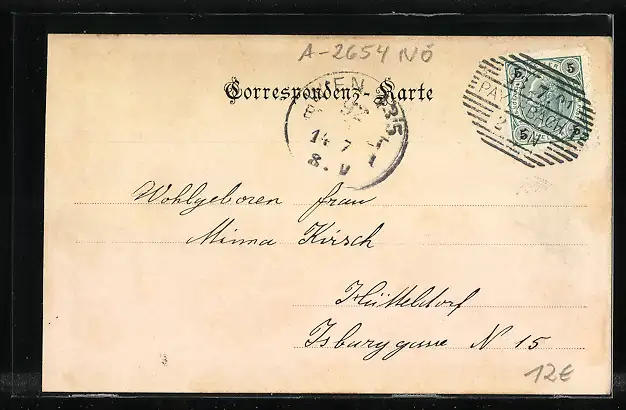 A-2654 NÖ
Correspondenz-Karte
WIEN
14 7
8. V
5
PAYERBACH
Wohlgeboren Frau
Minna Kirsch
Hütteldorf
Isbarygasse N 15
12€